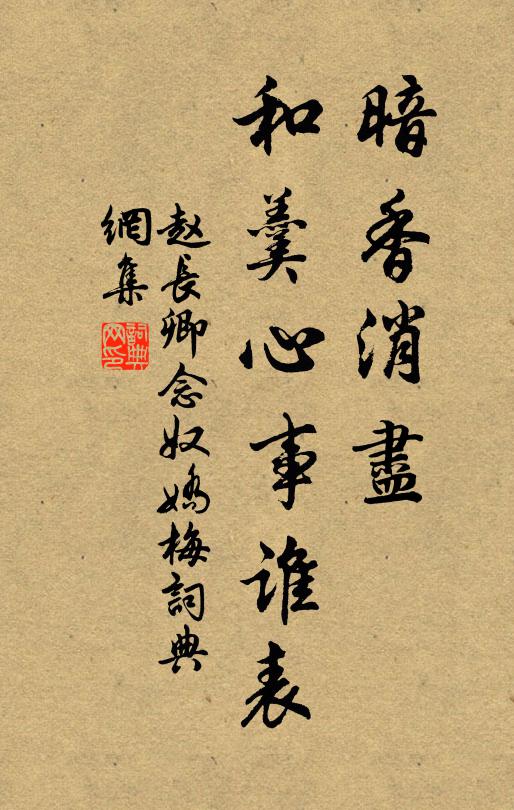 暗香消盡
和羹心事誰表
赵長卿念奴嬌梅詞典
網集
詞典
网印